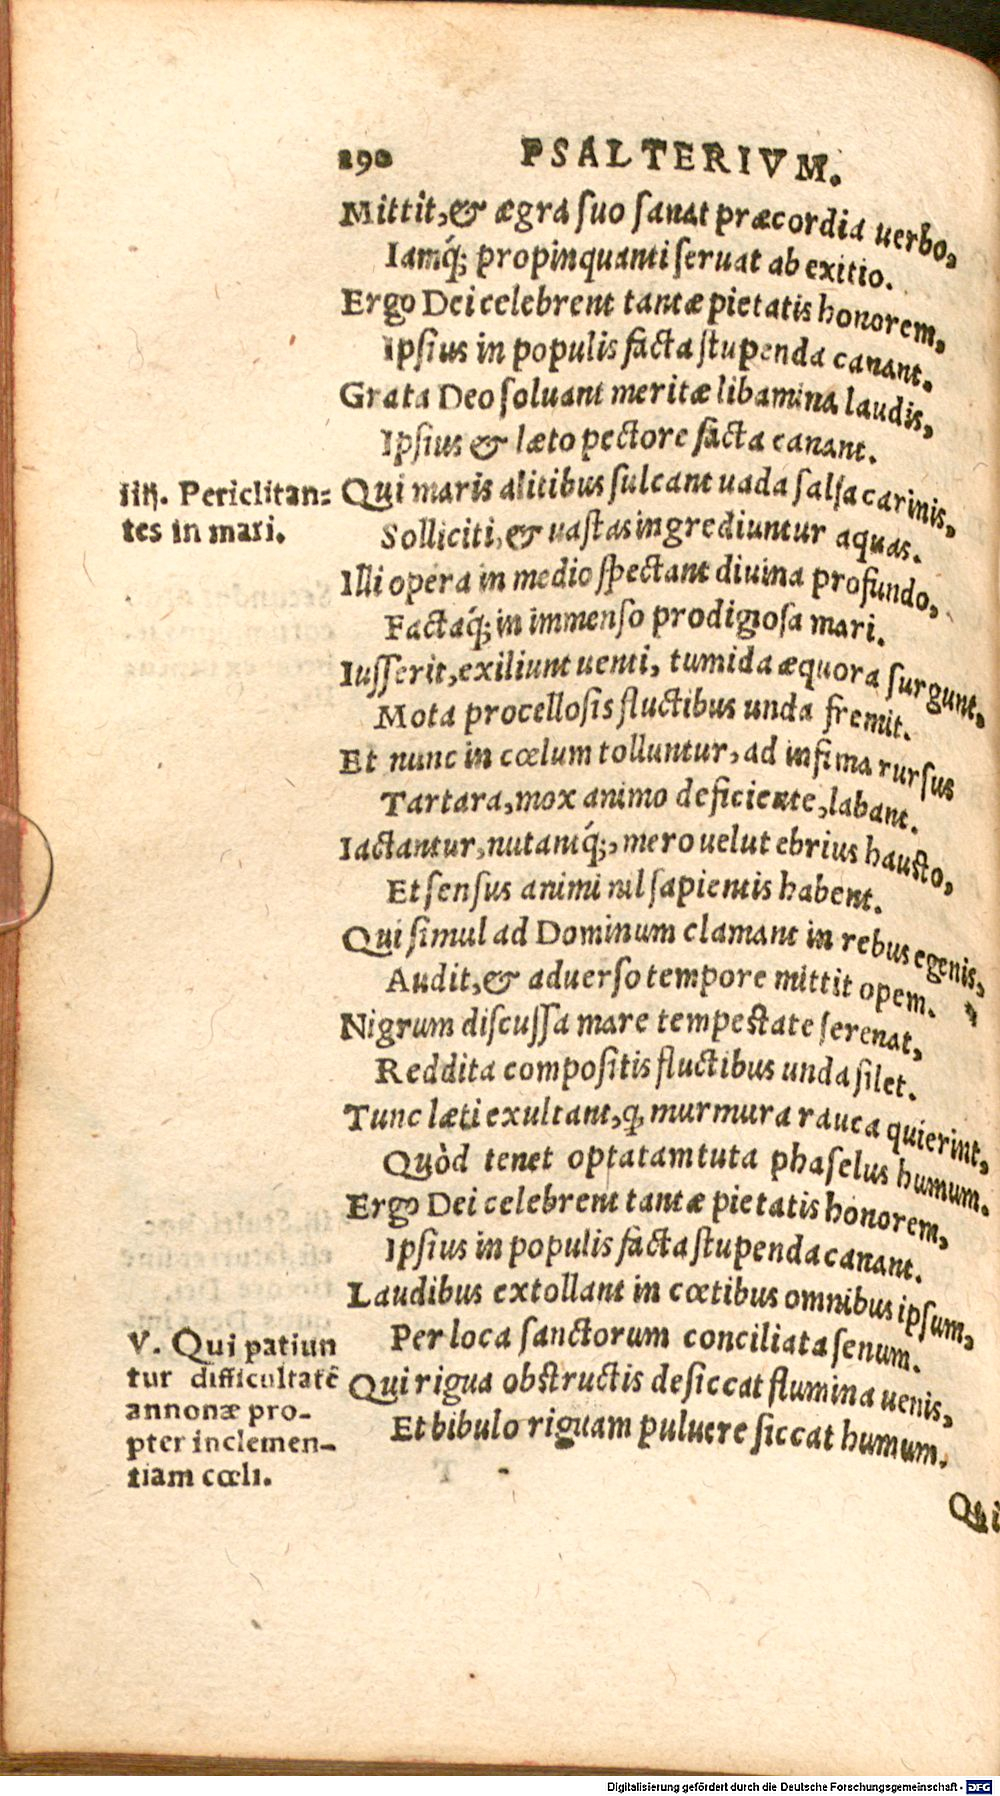 290 PSALTERIVM.
Mittit, & ægra suo sanat præcordia uerbo,
Iamq́; propinquanti seruat ab exitio.
Ergo Dei celebrent tantæ pietatis honorem,
Ipsius in populis facta stupenda canant.
Grata Deo soluant meritæ libamina laudis,
Ipsius & læto pectore facta canant.
iiij. Periclitan=
tes in mari.
Qui maris alitibus sulcant uada salsa carinis,
Solliciti, & uastas ingrediuntur aquas.
Illi opera in medio spectant diuina profundo,
Factaq́; in immenso prodigiosa mari.
Iusserit, exiliunt uenti, tumida æquora surgunt,
Mota procellosis fluctibus unda fremit.
Et nunc in cœlum tolluntur, ad infima rursus
Tartara, mox animo deficiente, labant.
Iactantur, nutantq́;, mero uelut ebrius hausto,
Et sensus animi nil sapientis habent.
Qui simul ad Dominum clamant in rebus egenis,
Audit, & aduerso tempore mittit opem.
Nigrum discussa mare tempestate serenat,
Reddita compositis fluctibus unda silet.
Tunc læti exultant, q, murmura rauca quierint,
Quòd tenet optatam tuta phaselus humum.
Ergo Dei celebrent tantæ pietatis honorem,
Ipsius in populis facta stupenda canant.
Laudibus extollant in cœtibus omnibus ipsum,
Per loca sanctorum conciliata senum.
V. Qui patiun
tur difficultatē
annonæ pro-
pter inclemen-
tiam cœli.
Qui rigua obstructis desiccat flumina uenis,
Et bibulo riguam puluere siccat humum.
Qui
Digitalisierung gefördert durch die Deutsche Forschungsgemeinschaft - DFG